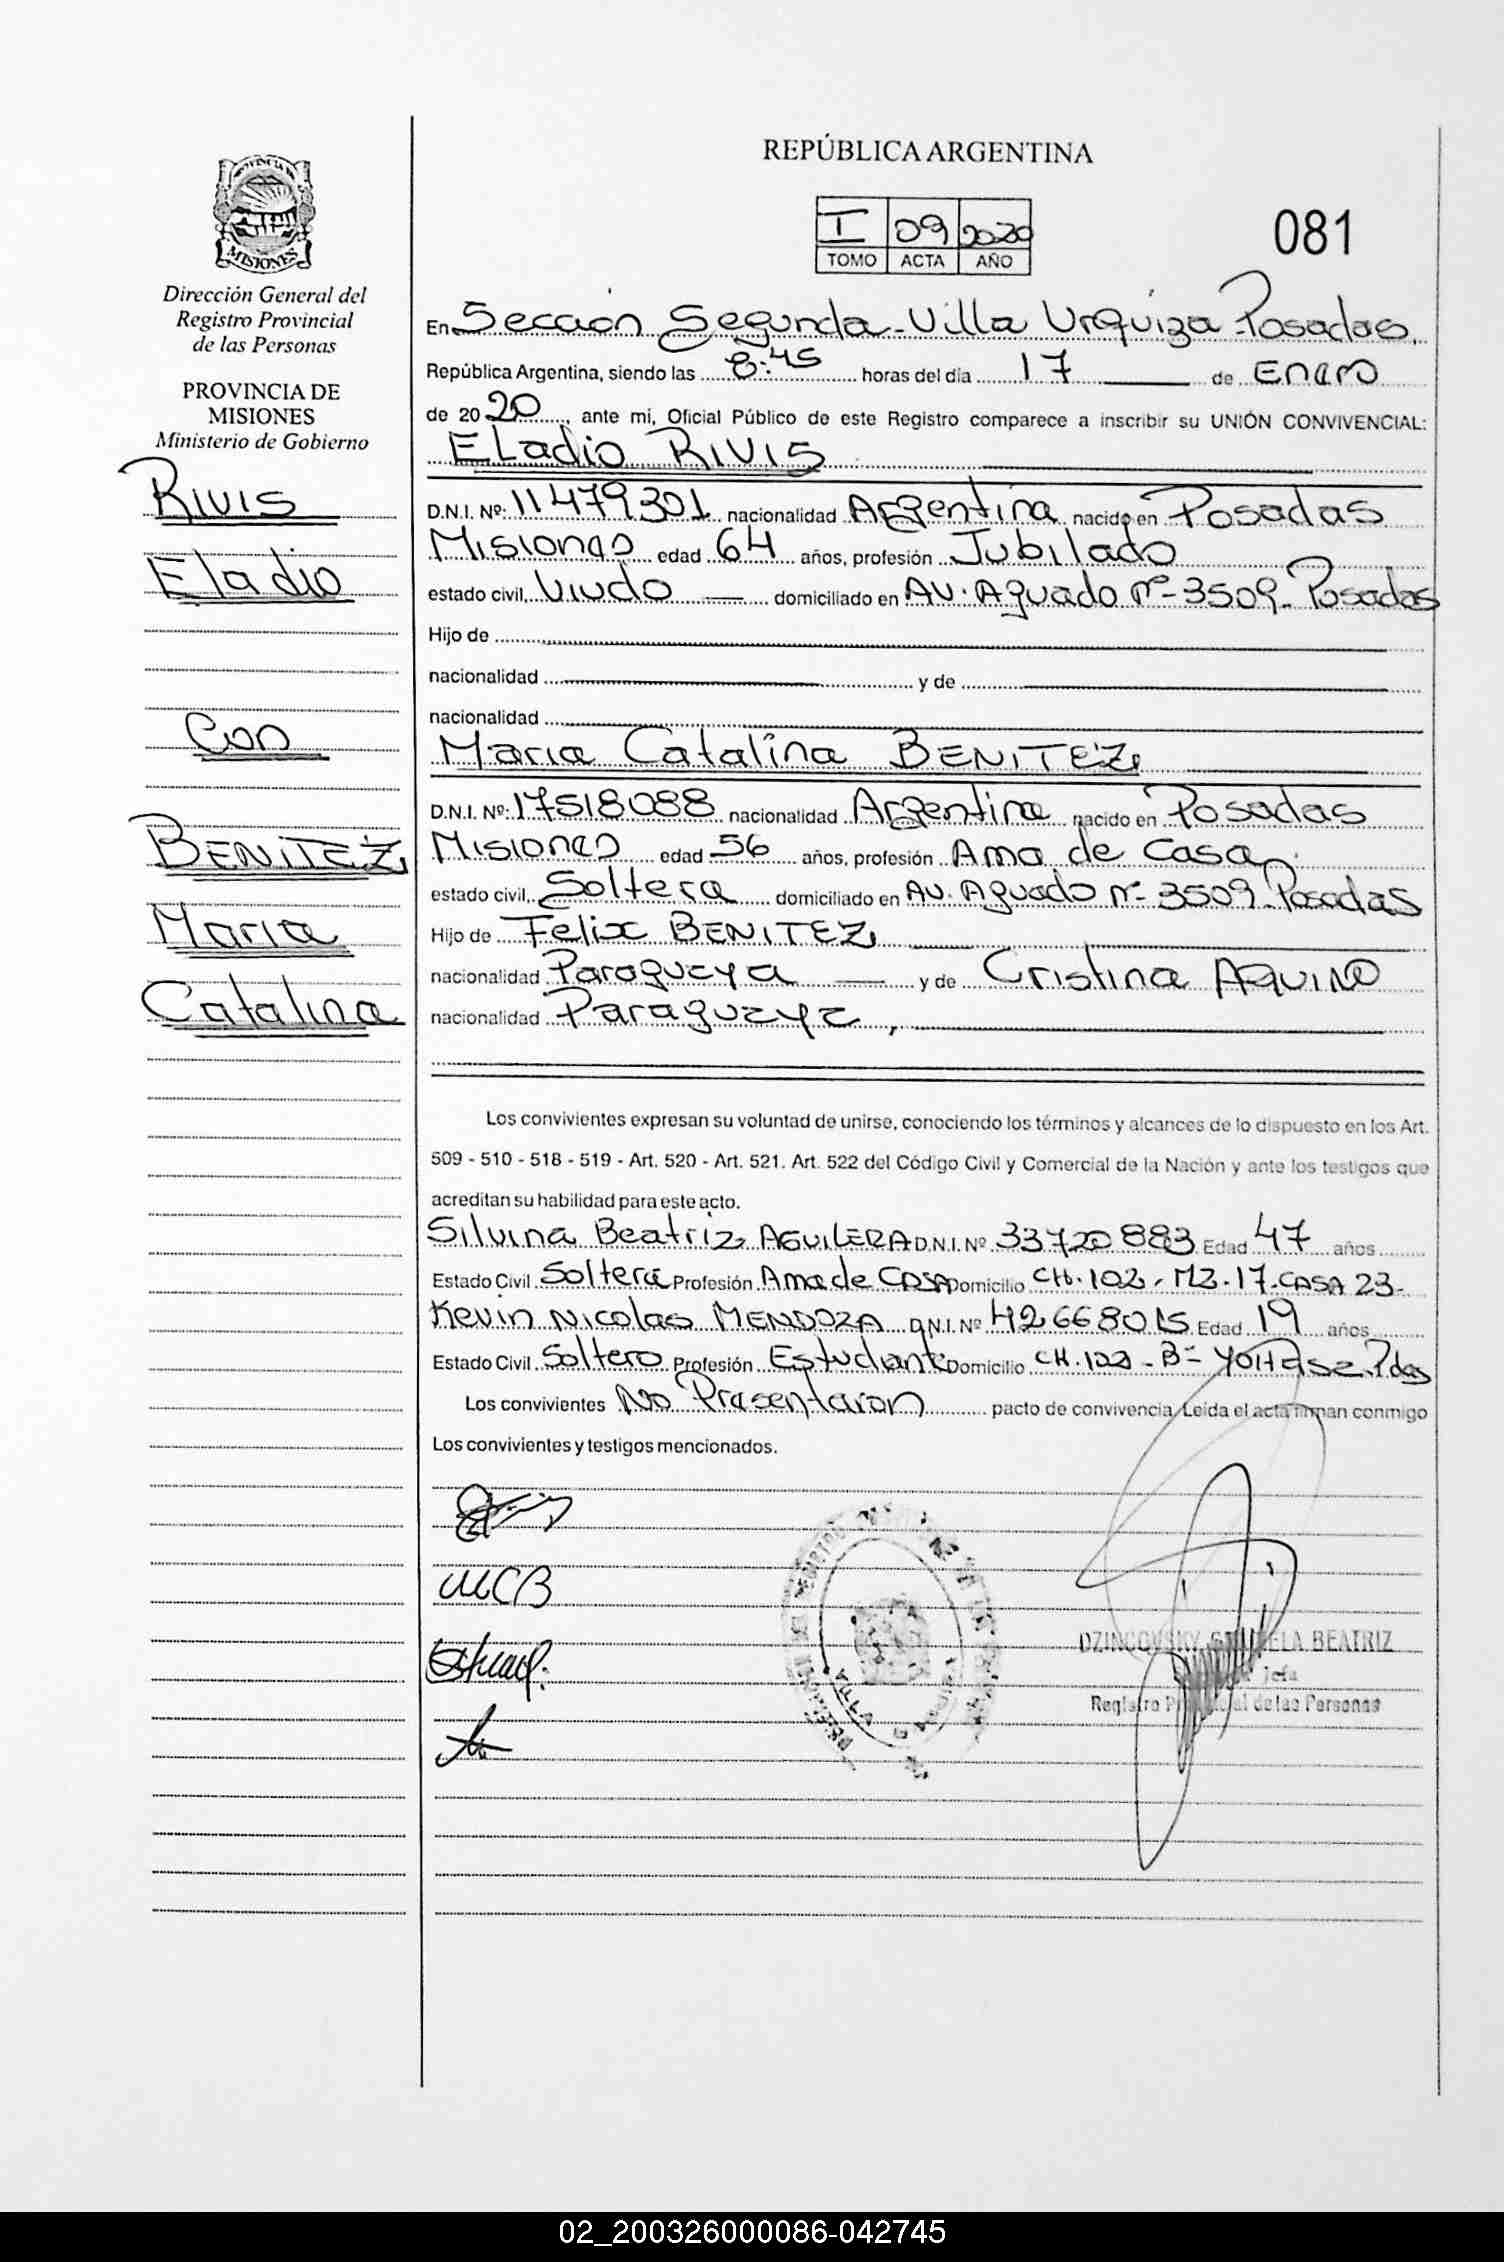 REPÚBLICA ARGENTINA
I 09 2020
TOMO ACTA AÑO
081
PROVINCIA DE
MISIONES
Dirección General del
Registro Provincial
de las Personas
PROVINCIA DE
MISIONES
Ministerio de Gobierno
RIVIS
Eladio
Con
BENITEZ
Maria
Catalina
En Sección Segunda - Villa Urquiza - Posadas.
República Argentina, siendo las 8:45 horas del día 17 de Enero
de 2020, ante mi, Oficial Público de este Registro comparece a inscribir su UNIÓN CONVIVENCIAL:
ELadio RIVIS
D.N.I. Nº: 11479301 nacionalidad Argentina nacido en Posadas
Misiones edad 64 años, profesión Jubilado
estado civil, Viudo domiciliado en AV. Aguado nº- 3509- Posadas
Hijo de
nacionalidad y de
nacionalidad
Maria Catalina BENITEZ
D.N.I. Nº: 17518088 nacionalidad Argentina nacido en Posadas
Misiones edad 56 años, profesión Ama de Casa
estado civil, Soltera domiciliado en AV. Aguado nº- 3509- Posadas
Hijo de Felix BENITEZ
nacionalidad Paraguaya y de Cristina AQUINO
nacionalidad Paraguaya,
Los convivientes expresan su voluntad de unirse, conociendo los términos y alcances de lo dispuesto en los Art.
509 - 510 - 518 - 519 - Art. 520 - Art. 521. Art. 522 del Código Civil y Comercial de la Nación y ante los testigos que
acreditan su habilidad para este acto.
Silvina Beatriz AGUILERA D.N.I. Nº 33720883 Edad 47 años
Estado Civil Soltera Profesión Ama de CASA Domicilio CH. 102. MZ. 17. CASA 23-
Kevin Nicolas MENDOZA D.N.I. Nº 42668015 Edad 19 años
Estado Civil Soltero Profesión Estudiante Domicilio CH. 122 - Bº
Los convivientes No Presentaron pacto de convivencia. Leída el acta firman conmigo
Los convivientes y testigos mencionados.
MCB
BEATRIZ
Jefa
Registro Provincial de las Personas
02_200326000086-042745